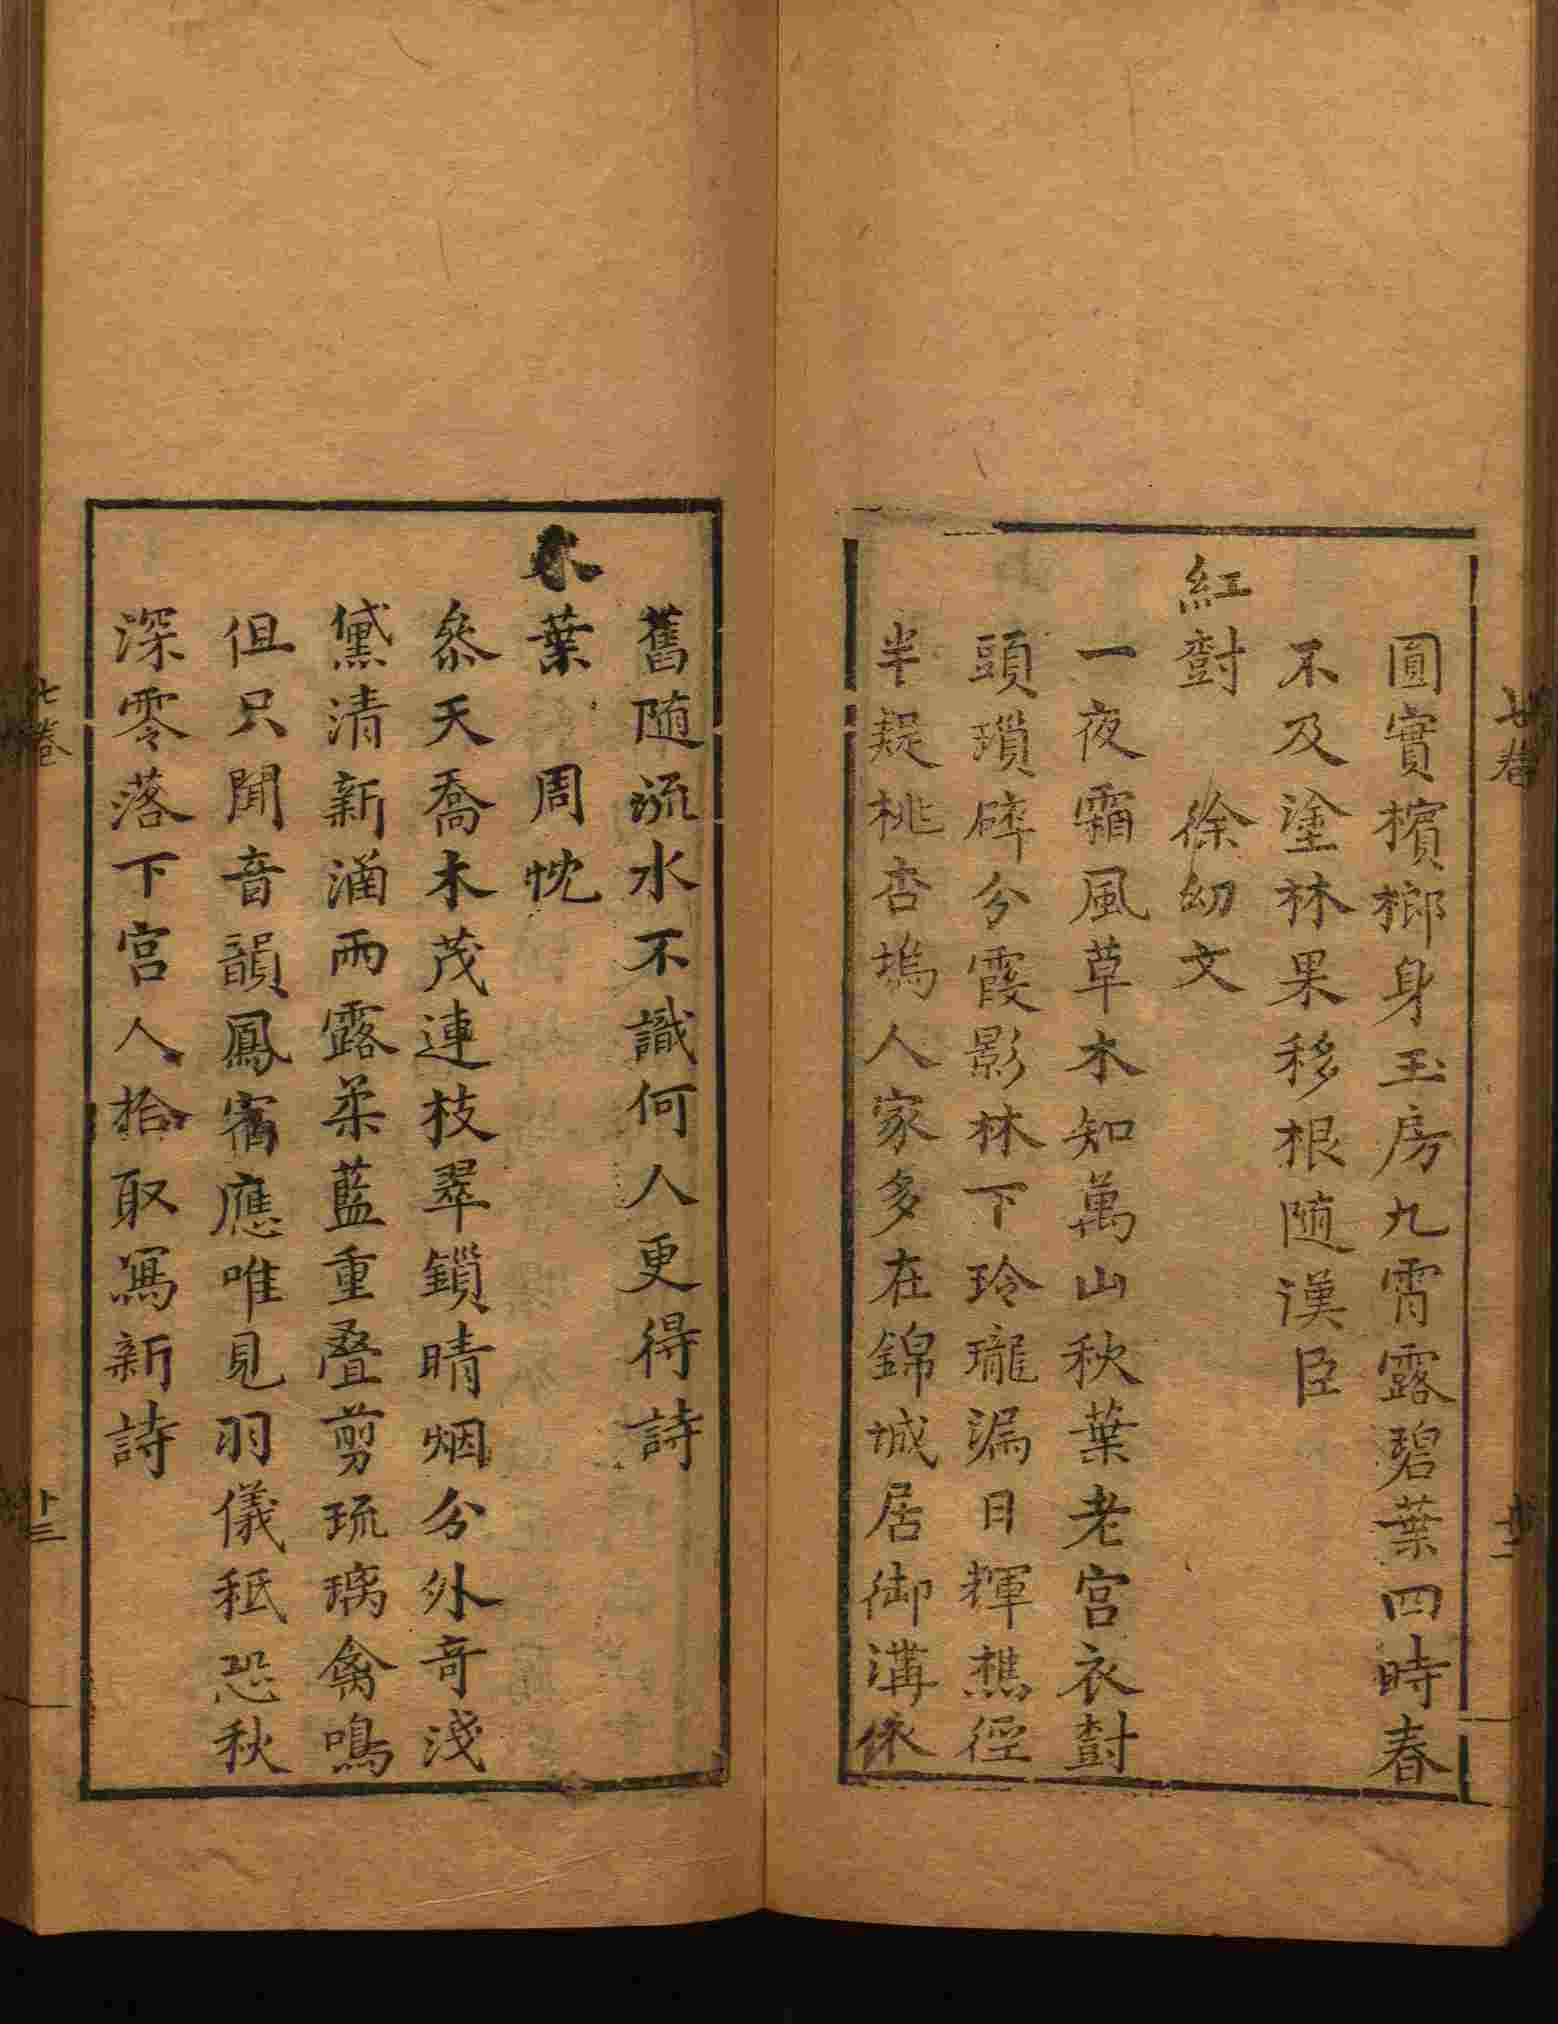 圓實檳榔身玉房九霄露碧葉四時春
不及塗林果移根隨漢臣
紅樹　徐幼文
一夜霜風草木知萬山秋葉老宮衣樹
頭瑣碎分霞影林下玲瓏漏日輝樵徑
半疑桃杏塢人家多在錦城居御溝依
舊随流水不識何人更得詩
木葉　周忱
叅天喬木茂連枝翠鎖晴烟分外奇淺
黛清新涵雨露柔藍重叠剪琉璃禽鳴
但只聞音韻鳳宿應唯見羽儀秪恐秋
深零落下宮人拾取寫新詩
七卷
廿二
七卷
廿三